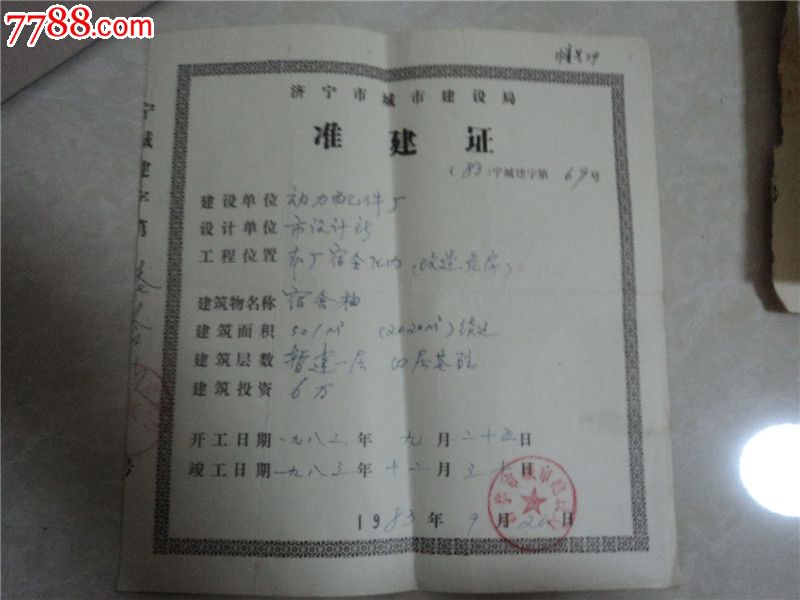 7788.com
济宁市城市建设局
准建证
(83)宁城建字第69号
建设单位 动力配件厂
设计单位 市设计所
工程位置 本厂宿舍区内(改造危房)
建筑物名称 宿舍楼
建筑面积 501M² (2020M²)续建
建筑层数 暂建一层 四层基础
建筑投资 6万
开工日期 一九八三年九月二十五日
竣工日期 一九八三年十二月三十日
1983年9月20日
宁城建字第
号